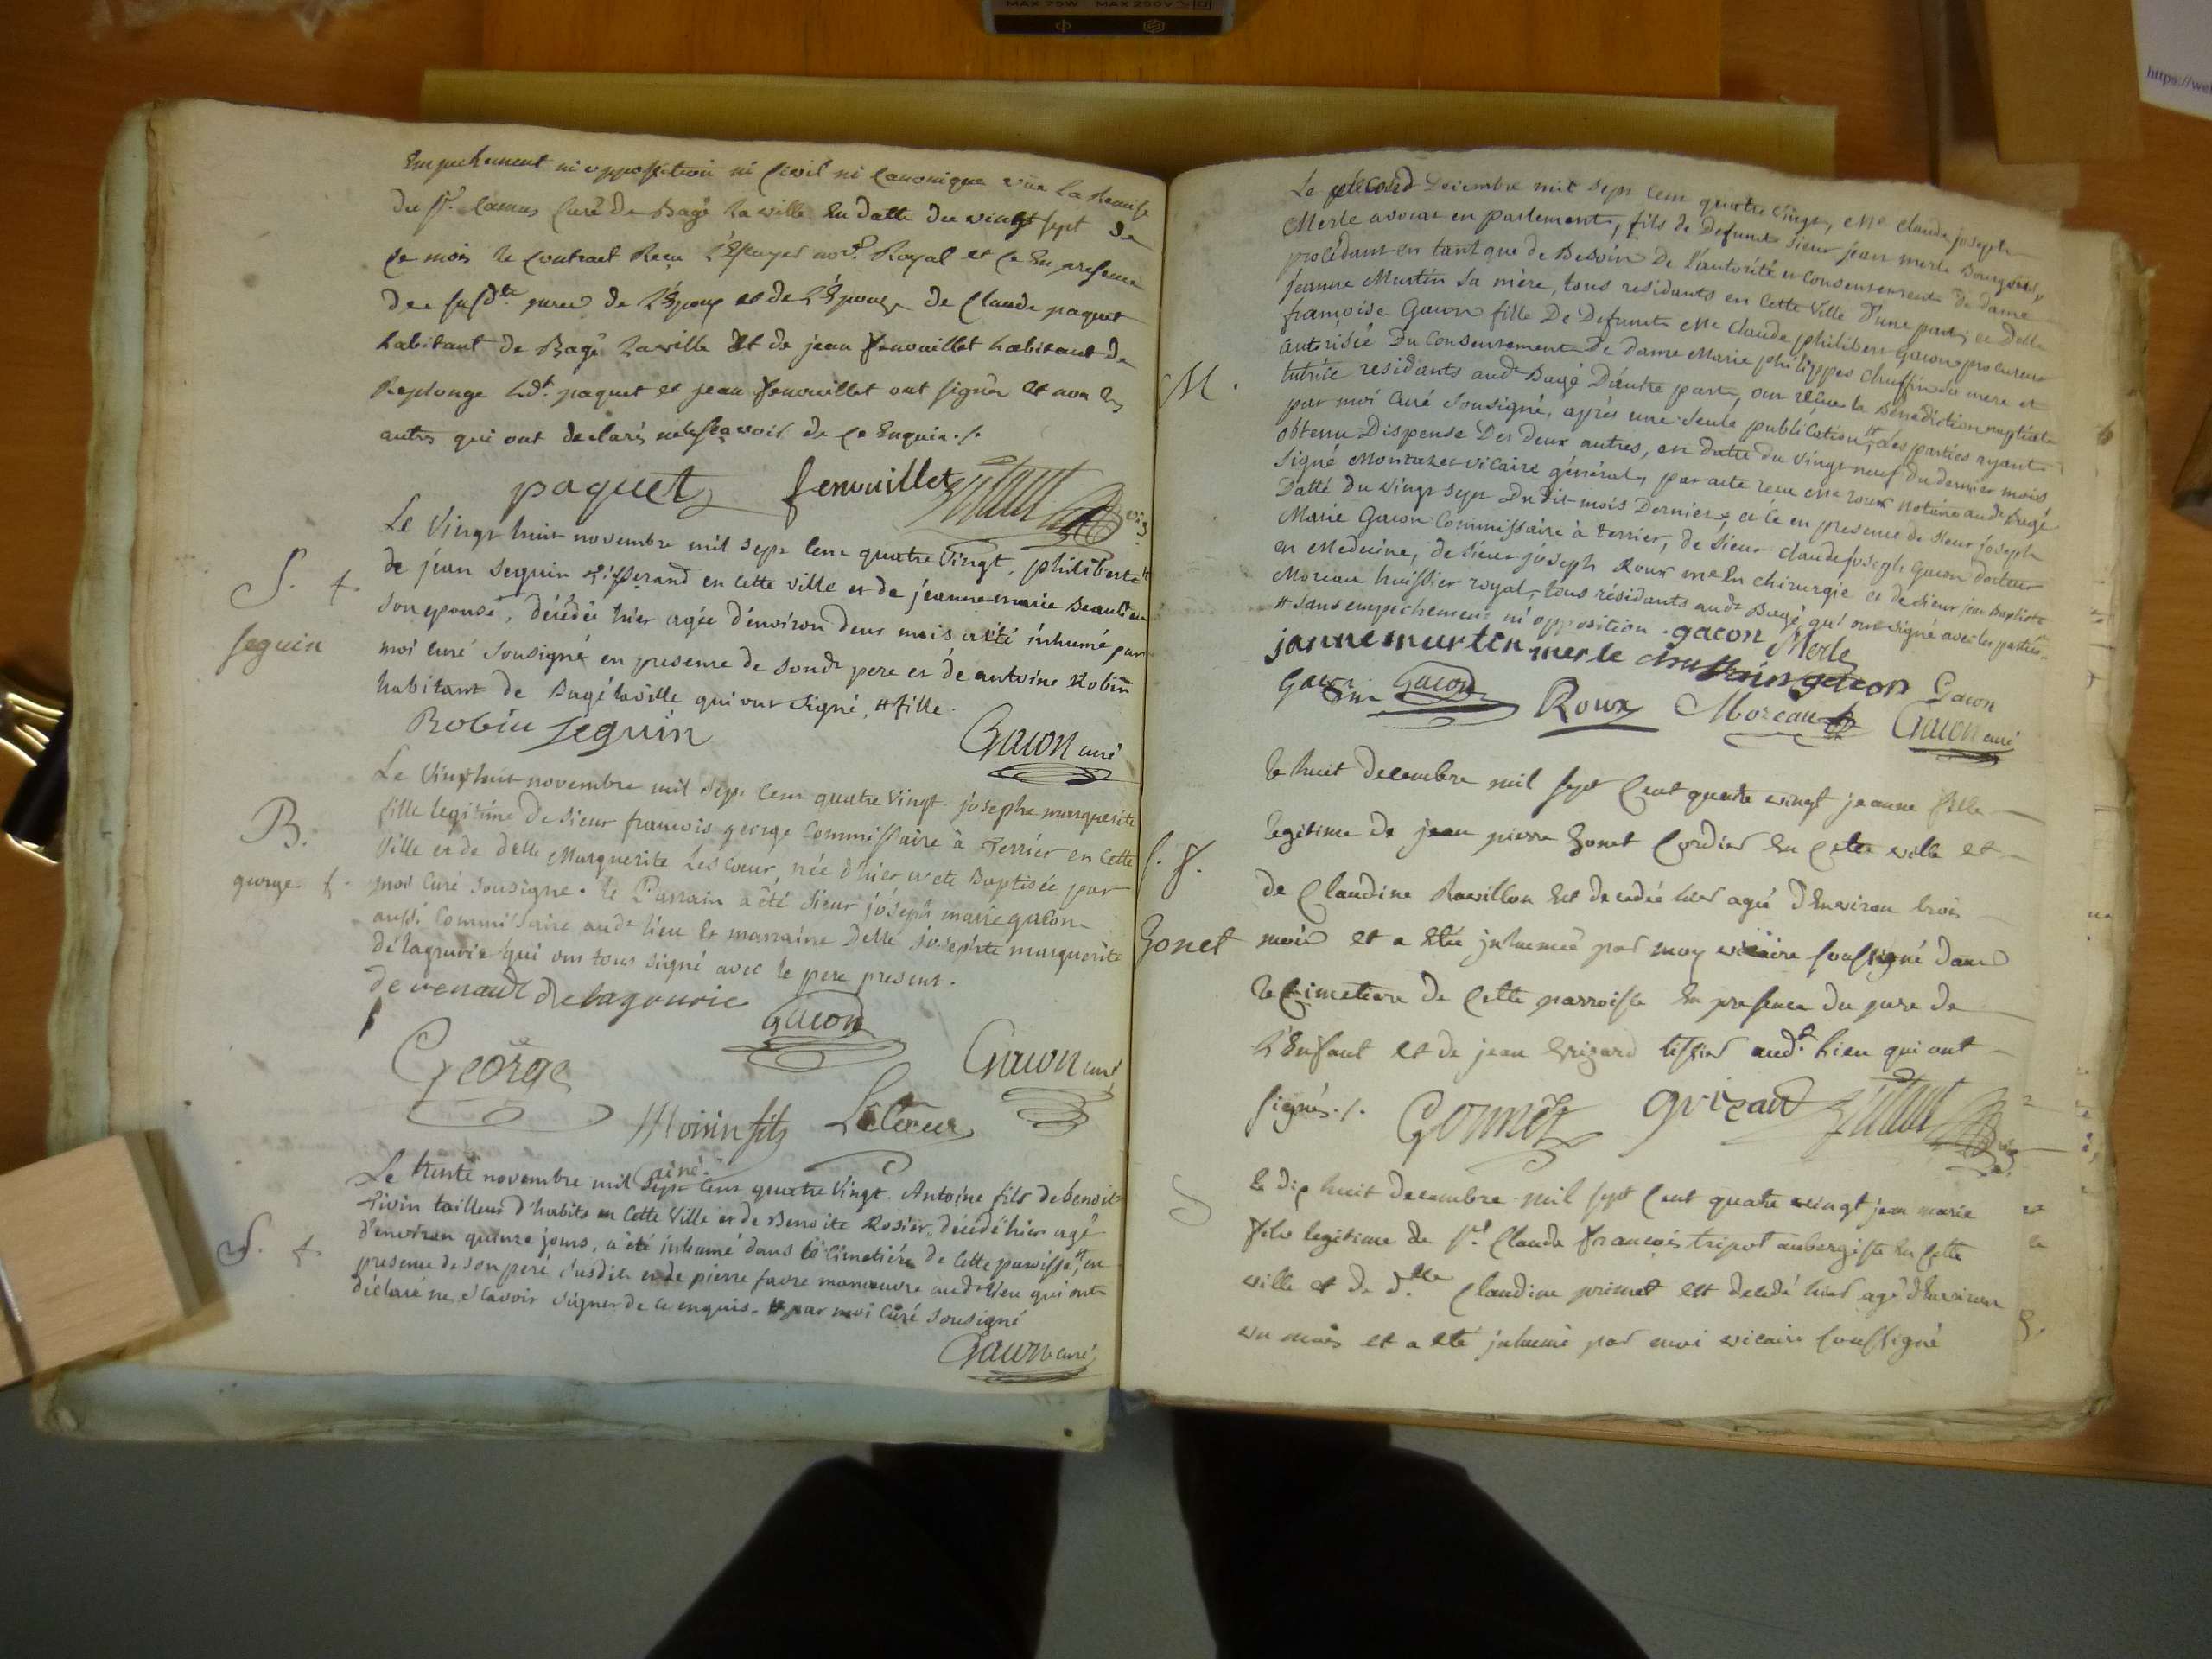 MAX 75W MAX 250V
https://we
Empechement ni opposition ni Civil ni Canonique vüe la Remise
du Sr. Camus Curé de Bagé la ville En datte du vingt sept de
Ce mois le Contract Reçu Royal et Ce En presence
des susdts peres de L'Epoux et de L'Epouse de Claude paquet
habitant de Bagé la ville Et de jean fenouillet habitant de
Replonge Ledt. paquet et jean fenouillet ont signés Et non les
autres qui ont declarés ne Sçavoir de Ce Enquis ./.
paquet fenouillet
Le Vingt huit novembre mil Sept Cent quatre Vingt, philiberte #
S. +
de jéan Seguin Tisserand en Cette ville et de jéanne marie Beaulieu
son epouse, décédée hier agée d'énviron deux mois a été inhumé par
seguin
moi Curé Sousigné en presence de Sondt pere et de antoine Robin
habitant de Bagé la ville qui ont Signé, # fille.
Robin Seguin
Gacon curé
Le Vingt huit novembre mil Sept Cent quatre Vingt josephe marguerite
B.
fille legitime de Sieur francois george Commissaire à Terrier en Cette
Ville et de Delle Marguerite Lescoeur, née d'hier a eté Baptisée par
george +.
moi Curé Sousigné. Le Parrain a été Sieur joseph marie gacon
aussi Commissaire audt lieu Et marraine Delle josephte marguerite
delagrurie qui ont tous signé avec le pere present.
de renaud De lagrurie
Gacon
George
Gacon curé
Moisin fils Lescoeur
ainé
Le trente novembre mil Sept Cent quatre Vingt. Antoine fils de benoit
Tivin tailleur d'habits en Cette Ville et de Benoite Rosier, décédé hier agé
S. +.
d'environ quinze jours, a été inhumé dans le Cimetiére de Cette paroisse, # en
presence de son peré Susdit et de pierre favre manoeuvre audt lieu qui ont
déclaré ne Scavoir Signer de Ce enquis. # par moi Curé Sousigné
Gacon curé
Le second Decembre mil Sept Cent quatre Vingt, Me Claude joseph
Merle avocat en parlement, fils de Defunct Sieur jean merle Bourgeois,
procédant en tant que de Besoin De l'autorité et Consentement de Dame
jeanne Murtin Sa mère, tous residants en Cette Ville D'une part; et Delle
françoise Gacon fille De Defunct Me Claude philibert Gacon procureur
autorisée Du Consentement De Dame Marie philippes Chuffin sa mere et
M.
tutrice residants audt Bagé D'autre part, ont reçüe la Bénédiction nuptiale
par moi Curé Sousigné, aprés une Seule publication #, Les parties ayant
obtenu Dispense Des Deux autres, en Datte du Vingt neuf du dernier mois
Signé Vicaire général, par acte reçu Me roux notaire audt Bagé
Datté Du Vingt Sept Du dit mois Dernier, et Ce en presence de Sieur joseph
Marie Gacon Commissaire à Terrier, de Sieur Claude joseph Gacon docteur
en Medecine, de Sieur joseph Roux me En Chirurgie et de Sieur jean Baptiste
Moreau huissier royal, tous résidants audt Bagé, qui ont Signé avec les parties
# Sans empechement ni opposition. gacon Merle
janne murtin merle chuffin gacon Gacon
Gacon Roux Moreau Gacon curé
le huit decembre mil sept Cent quatre vingt jeanne fille
legitime de jean pierre Gonet Cordier En Cette ville et
de Claudine Ravillon Est decedée hier agée D'Environ trois
Gonet
mois Et a Etée inhumée par moy vicaire soussigné dans
le Cimetiere de Cette parroisse En presence du pere de
L'Enfant et de jean Grizard tissier audt. Lieu qui ont
signés ./. Gonnet grizard
S
le dix huit decembre mil sept Cent quatre vingt jean marie
fils legitime de Sr. Claude francois tripot aubergiste En Cette
ville et de dlle Claudine primet Est decedé hier agé d'Environ
un mois Et a Eté inhumé par moi vicaire soussigné